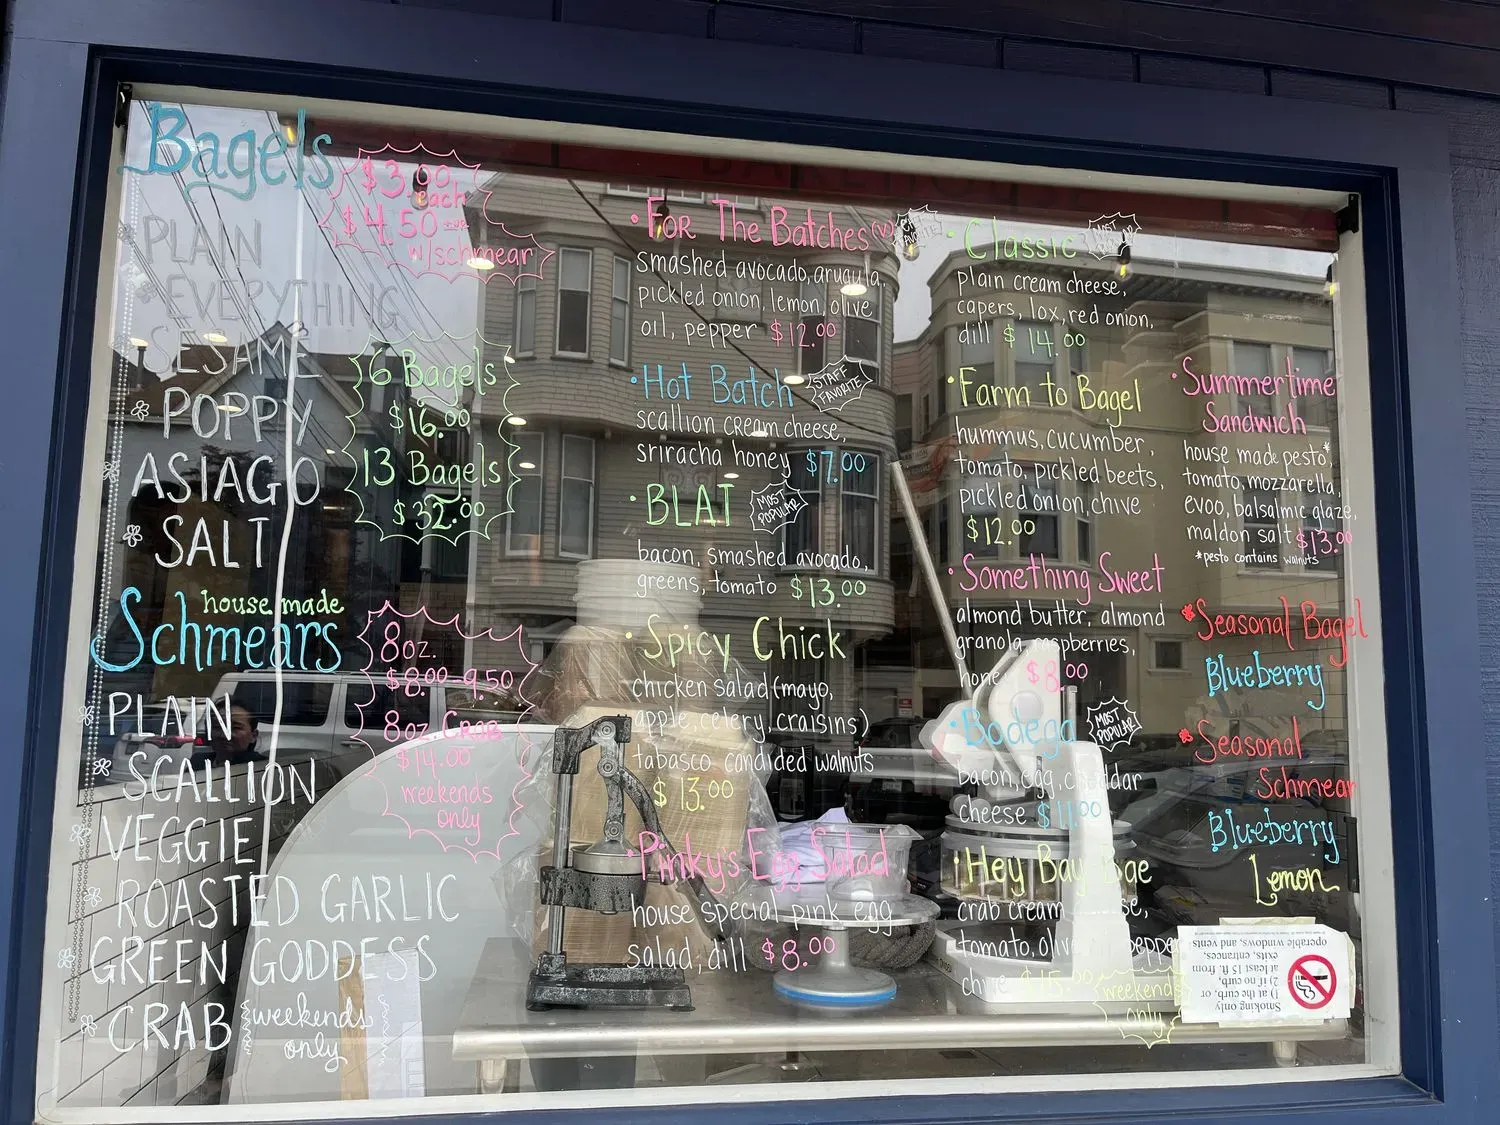 Bagels
$3.00
each
$4.50
w/schmear
PLAIN
EVERYTHING
SESAME
POPPY
ASIAGO
SALT
6 Bagels
$16.00
13 Bagels
$32.00
house made
Schmears
8oz.
$8.00-9.50
8oz. CRAB
$14.00
weekends
only
PLAIN
SCALLION
VEGGIE
ROASTED GARLIC
GREEN GODDESS
CRAB weekends
only
• FOR THE Batches (V)
smashed avocado, arugula,
pickled onion, lemon, olive
oil, pepper $12.00
• Hot Batch STAFF
FAVORITE
scallion cream cheese,
sriracha honey $7.00
• BLAT MOST
POPULAR
bacon, smashed avocado,
greens, tomato $13.00
• Spicy Chick
chicken salad (mayo,
apple, celery, craisins)
tabasco candided walnuts
$13.00
• Pinky's Egg Salad
house special pink egg
salad, dill $8.00
• Classic MOST
plain cream cheese,
capers, lox, red onion,
dill $14.00
• Farm to Bagel
hummus, cucumber,
tomato, pickled beets,
pickled onion, chive
$12.00
• Something Sweet
almond butter, almond
granola, raspberries,
$8.00
• Bodega MOST
POPULAR
bacon, egg, cheddar
cheese $11.00
• Hey Bay Bae
crab cream
tomato,
$15.00
weekends
only
• Summertime
Sandwich
house made pesto*,
tomato, mozzarella,
evoo, balsalmic glaze,
maldon salt $13.00
*pesto contains walnuts
* Seasonal Bagel
Blueberry
* Seasonal
Schmear
Blueberry
Lemon
Smoking only
1) at the curb, or
2) if no curb,
at least 15 ft. from
exits, entrances,
operable windows, and vents